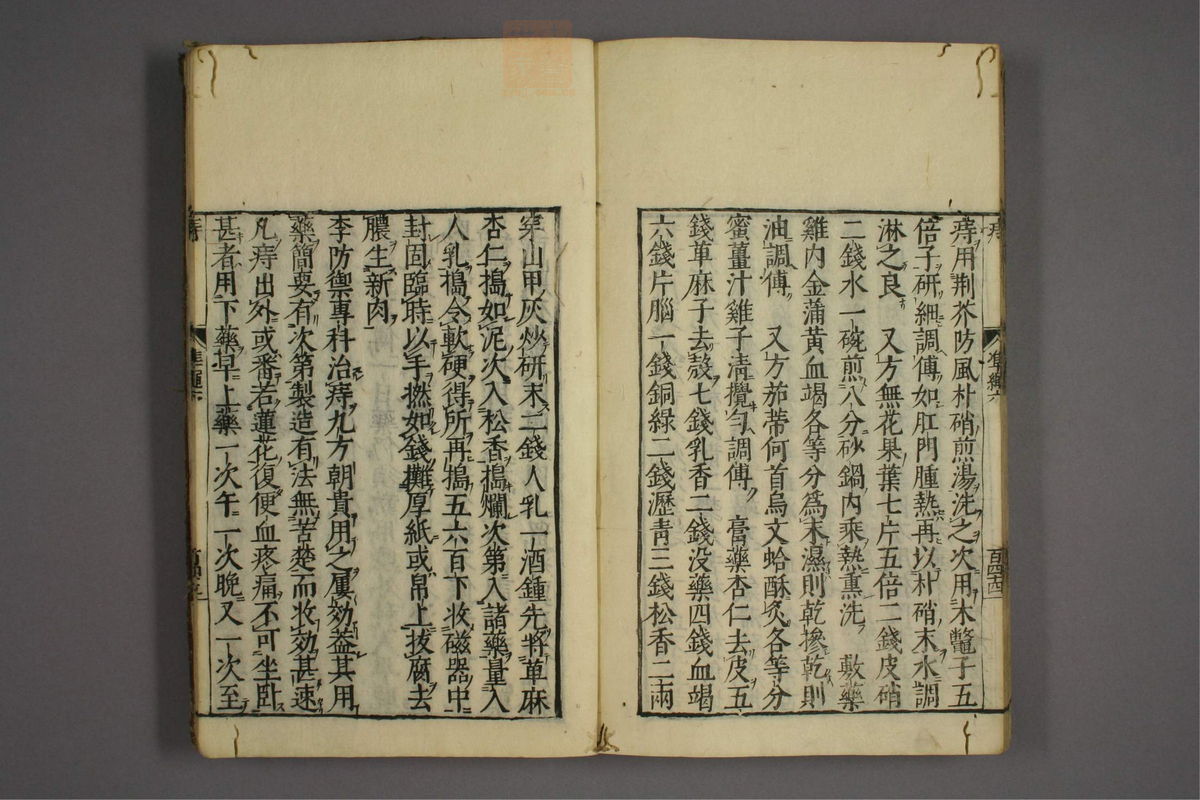 痔用荆芥防風朴硝煎湯洗之次用木鼈子五
倍子研細調傅如肛門腫熱再以朴硝末水調
淋之良　又方無花果葉七片五倍二錢皮硝
二錢水一碗煎八分砂鍋内乘熱熏洗　敷藥
雞内金蒲黄血竭各等分爲末濕則乾摻乾則
油調傅　又方茄蒂何首烏文蛤酥灸各等分
蜜薑汁雞子清攪勻調傅　膏藥杏仁去皮五
錢草麻子去殼七錢乳香二錢没藥四錢血竭
六錢片腦一錢銅緑二錢瀝青三錢松香二兩
穿山甲灰炒研末二錢人乳一酒鍾先將草麻
杏仁搗如泥次入松香搗爛次第入諸藥量入
人乳搗令軟硬得所再搗五六百下收磁器中
封固臨時以手撚如錢攤厚紙或帛上拔腐去
膿生新肉
李防禦專科治痔九方朝貴用之屢効葢其用
藥簡要有次第製造有法無苦楚而收効甚速
凡痔出外或番若蓮花復便血疼痛不可坐臥
甚者用下藥早上藥一次午一次晚又一次至